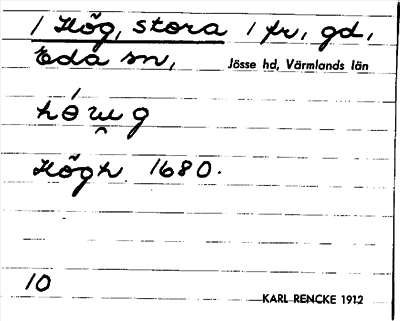 1 Hög, stora 1 fr, gd,
Eda sn, Jösse hd, Värmlands län
Högh 1680.
10 KARL RENCKE 1912